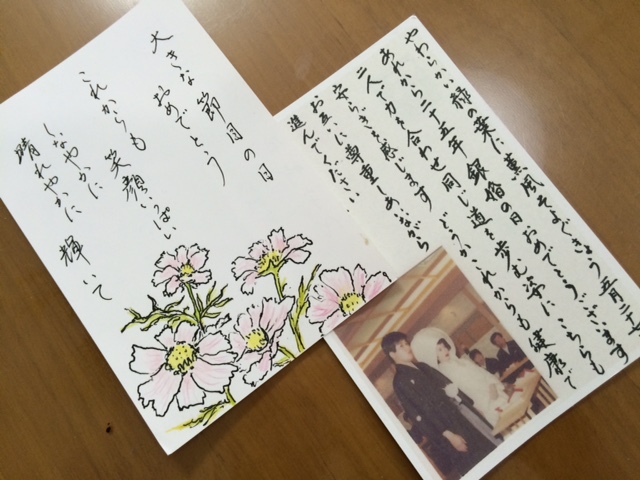 大きな 節目の日
おめでとう
これからも 笑顔いっぱい
しなやかに
晴れやかに 輝いて
やわらかい緑の葉に 薫風そよぐきょう 五月二十
あれから二十五年 銀婚の日おめでとうございます
二人で力を合わせ 同じ道を歩む姿に こちらも
安らぎを感じます どうか これからも健康で
お互いに尊重しあながら
進んでください